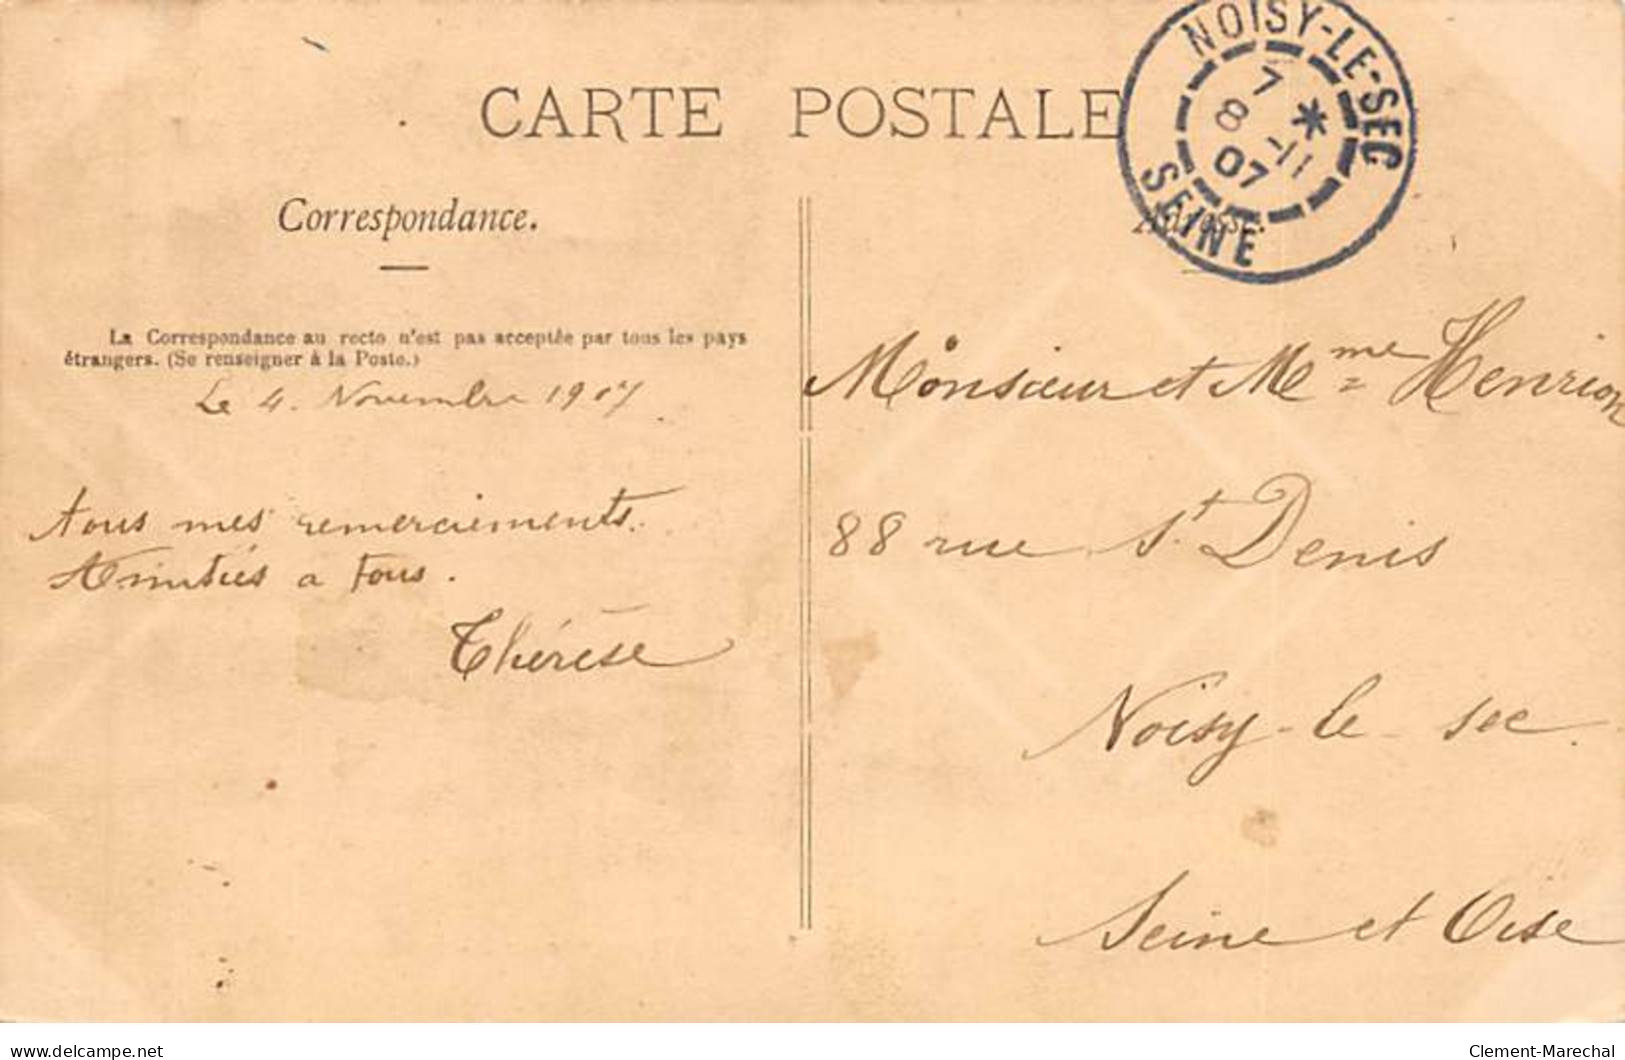 CARTE POSTALE
NOISY-LE-SEC
7 *
8 -11
07
SEINE
Correspondance.
Adresse.
La Correspondance au recto n'est pas acceptée par tous les pays
étrangers. (Se renseigner à la Poste.)
Le 4. Novembre 1907
tous mes remerciements.
Amitiés a tous.
Thérèse
Monsieur et Mme Henrion
88 rue St. Denis
Noisy-le-sec.
Seine et Oise
delcampe.net
Clement-Marechal